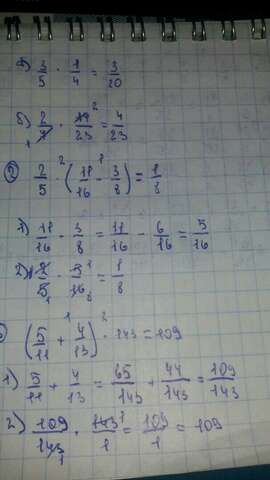 а) 3/5 · 1/4 = 3/20
б) 2/7 · 14/23 = 4/23
2/5 · (11/16 - 3/8) = 1/8
1) 11/16 - 3/8 = 11/16 - 6/16 = 5/16
2) 2/5 · 5/16 = 1/8
(5/11 + 4/13) · 143 = 109
1) 5/11 + 4/13 = 65/143 + 44/143 = 109/143
2) 109/143 · 143/1 = 109/1 = 109